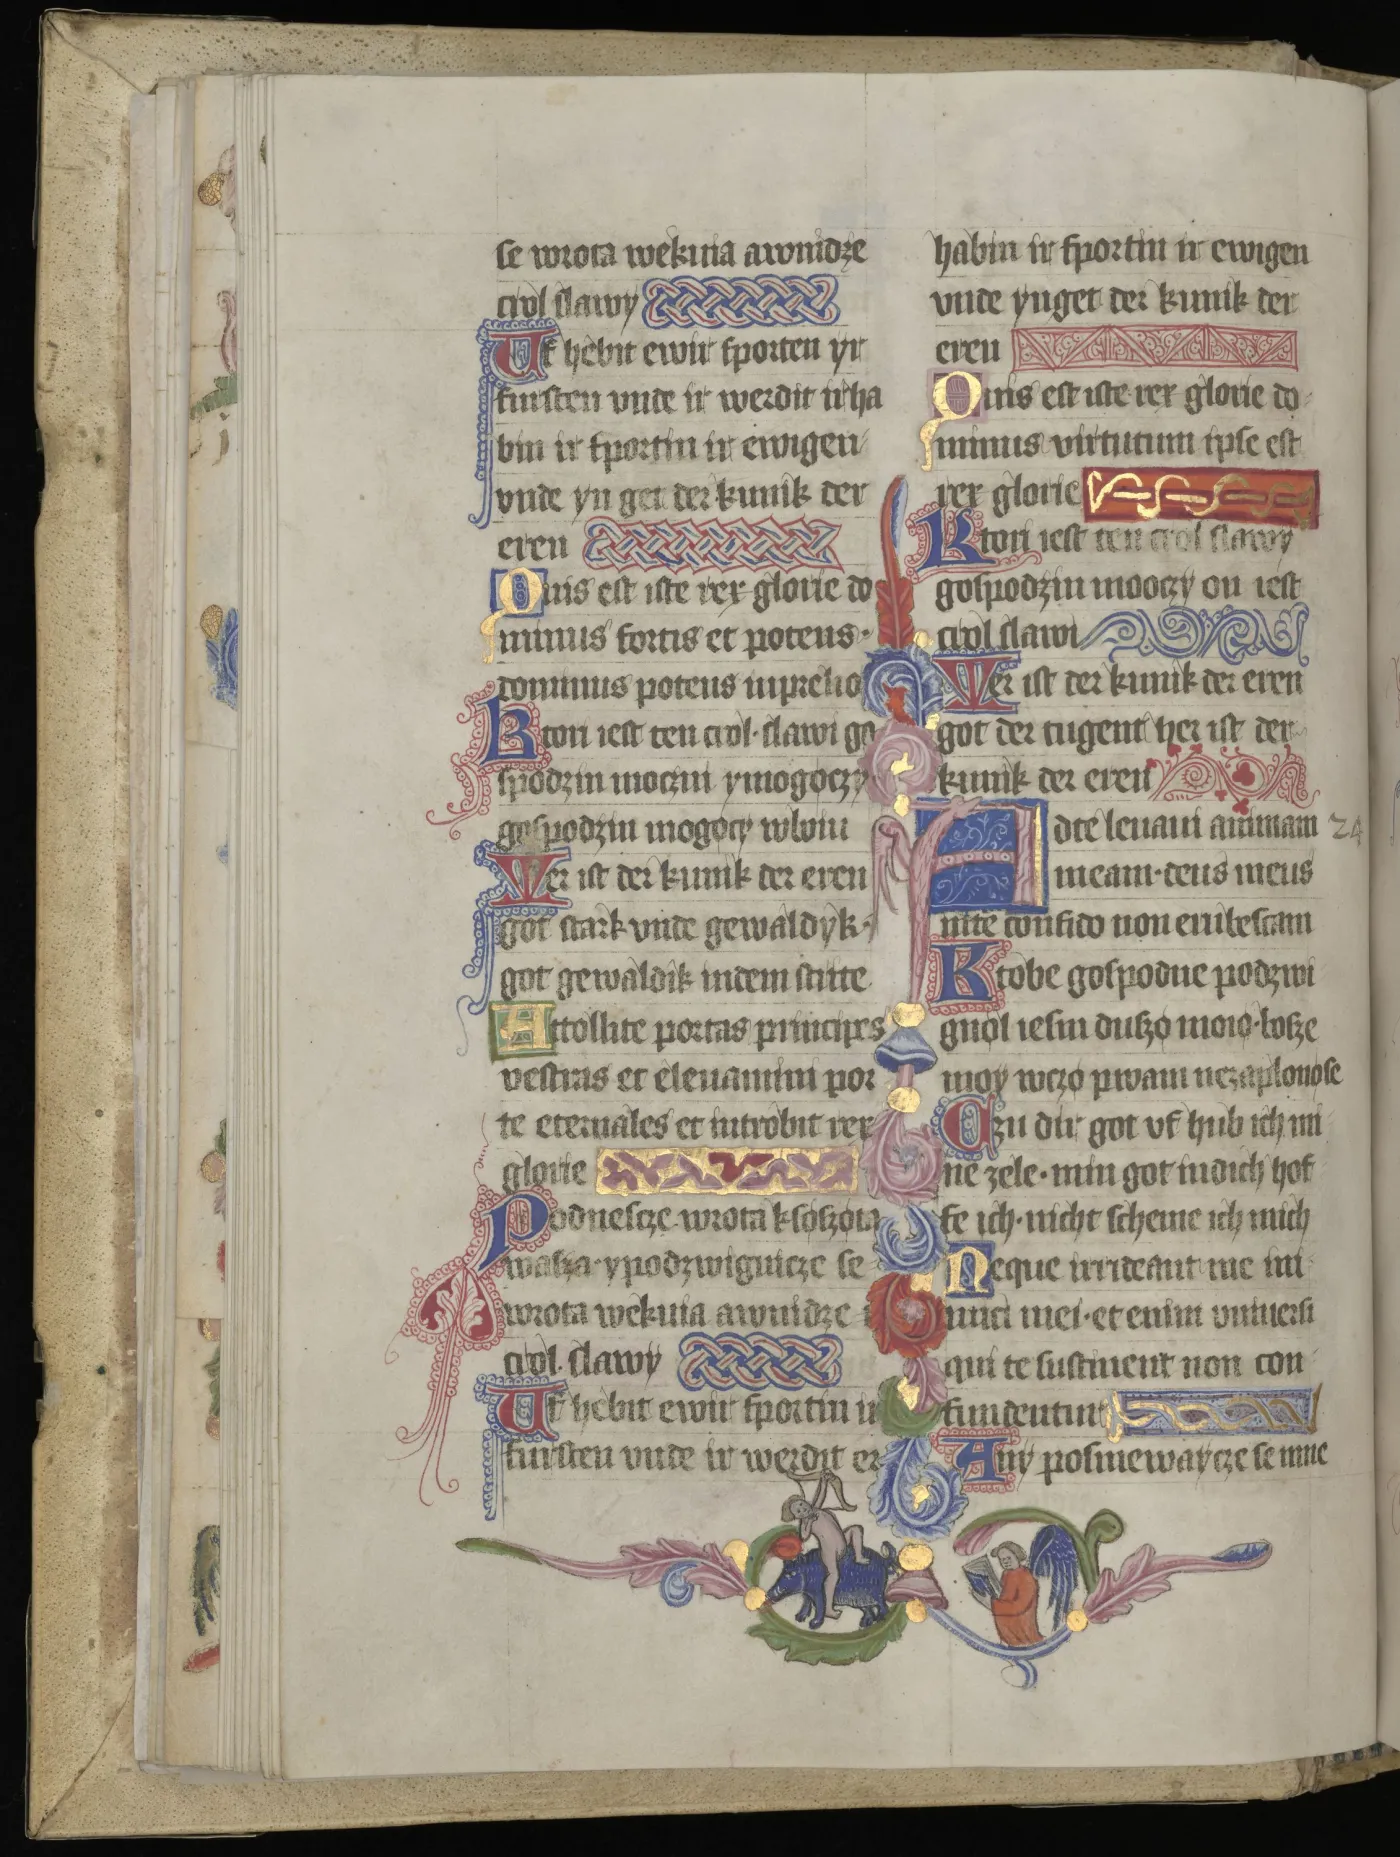 se wrota wekuia awnidze
crol slawy
Uf hebit ewir fporten yr
fursten vnde ir werdit irha
bin ir fportin ir ewigen
vnde yn get der kunik der
eren
Quis est iste rex glorie do
minus fortis et potens·
dominus potens inprelio
Kton iest ten crol· slawi go
spodzin moczni ymogoczy
gospodzin mogoczy wboiu
Wer ist der kunik der eren
got stark vnde gewaldyk·
got gewaldik indem strite
Attollite portas principes
vestras et eleuamini por
te eternales et introibit rex
glorie
Podnescze wrota ksoszota
wasza· ypodzwignicze se
wrota wekuia awnidze
crol· slawy
Uf hebit ewir fportin ir
fursten vnde ir werdit er
habin ir fportin ir ewigen
vnde ynget der kunik der
eren
Quis est iste rex glorie do
minus virtutum ipse est
rex glorie
Kton iest ten crol slawy
gospodzin mooczy on iest
crol slawi
Wer ist der kunik der eren
got der tugent her ist der
kunik der eren
Adte leuaui animam 24
meam· deus meus
inte confido non erubescam
Ktobe gospodne podzwi
gnol iesm duszo moio· bosze
moy wczo pwam nezaplonose
Czu dir got vf hub ich mi
ne zele· min got indich hof
fe ich· nicht scheme ich mich
Neque irrideant me ini
mici mei· et enim vniuersi
qui te sustinent non con
fundentur
Any posmewaycze se mne